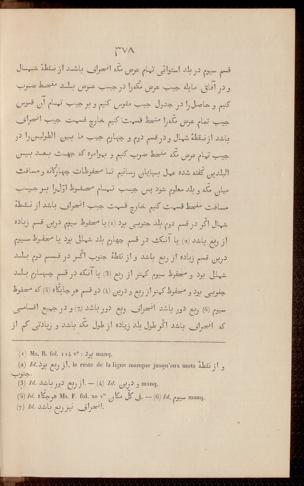 ٣٧٨
قسم سیوم در بلد استوائی تمام عرض مکّه انحراف باشد از نقطهٔ شمال
و در آفاق مایله جیب عرض مکّه را در جیب عرض بلد منحط ضرب
کنیم و حاصل را در جدول جیب مقوس کنیم و بر جیب تمام آن قوس
جیب تمام عرض مکّه را منحط قسمت کنیم خارج قسمت جیب انحراف
باشد از نقطهٔ شمال و در قسم دوم و چهارم جیب ما بین الطولین را در
جیب تمام عرض مکّه منحط ضرب کنیم و بهرامره که جهت بعد بین
البلدین گفته شده عمل بپایان رسانیم تا محفوظات چهارگانه و مسافت
میان مکّه و بلد معلوم شود پس جیب تمام محفوظ اوّل را بر جیب
مسافت منحط قسمت کنیم خارج قسمت جیب انحراف باشد از نقطهٔ
شمال اگر در قسم دوم بلد جنوبی بود (1) یا محفوظ سیوم درین قسم زیاده
از ربع باشد (2) یا آنکه در قسم چهارم بلد شمالی بود یا محفوظ سیوم
درین قسم زیاده از ربع باشد و از نقطهٔ جنوب اگر در قسم دوم بلد
شمالی بود و محفوظ سیوم کمتر از ربع (3) یا آنکه در قسم چهارم بلد
جنوبی بود و محفوظ کمتر از ربع و درین (4) در قسم هر جایگاه (5) که محفوظ
سیوم (6) ربع دور باشد انحراف ربع دور باشد (7) و در جمیع اقسامی
که انحراف باشد اگر طول بلد زیاده از طول مکّه باشد و زیادتی کم از
(1) Ms. B. fol. 114 v°: بود manq.
(2) Id. از ربع بود, le reste de la ligne manque jusqu'aux mots و از نقطهٔ
جنوب.
(3) Id. از ربع دور باشد. — (4) Id. و درین manq.
(5) Id. هر جگاه Ms. F. fol. 20 v° فی کلّ مکان. — (6) Id. سیوم manq.
(7) Id. انحراف نیز ربع باشد.